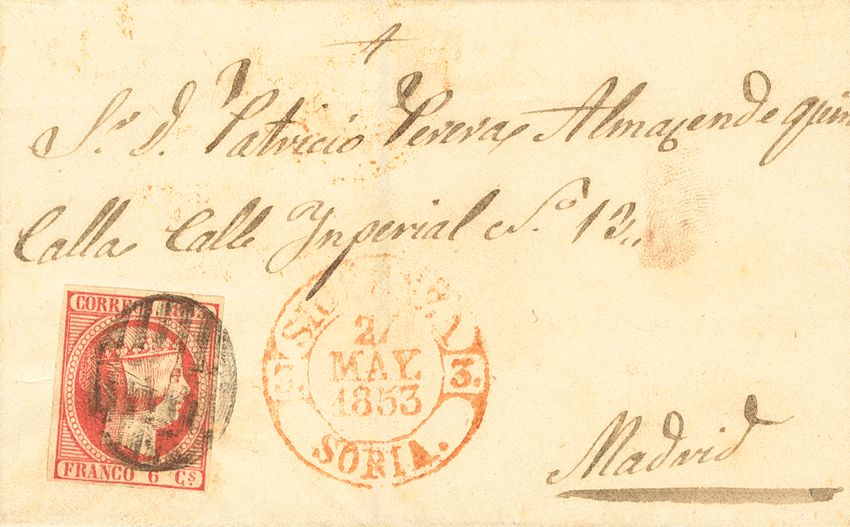 Sr. D. Patricio Perera Almacen de quin
Calla Calle Ynperial No. 13
CORREOS 1853
FRANCO 6 Cs
MAY.
1853
3. 3.
SORIA.
Madrid